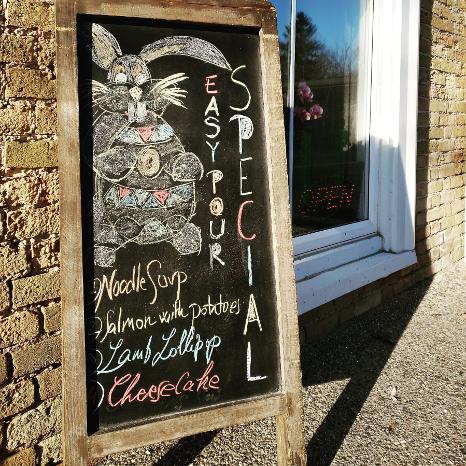 EASY POUR
SPECIAL
Noodle Soup
Salmon with potatoes
Lamb Lollipop
CheeseCake
OPEN